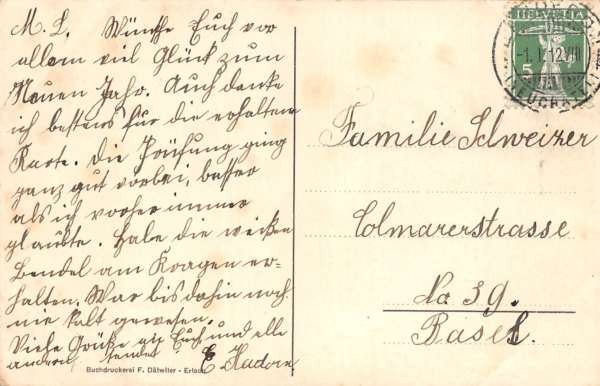 M. L. Wünsche Euch vor
allem viel Glück zum
Neuen Jahr. Auch danke
ich bestens für die erhaltene
Karte. Die Prüfung ging
ganz gut vorbei, besser
als ich vorher immer
glaubte. Habe die weißen
Bendel am Kragen er-
halten. War bis dahin noch
nie kalt gewesen.
Viele Grüße an Euch und alle
andern, sendet E. Hadorn
Buchdruckerei F. Dätwiler - Erlach
HELVETIA
5
-1.1.12 VIII
(NEUCHATEL)
Familie Schweizer
Colmarerstrasse
No 39.
Basel